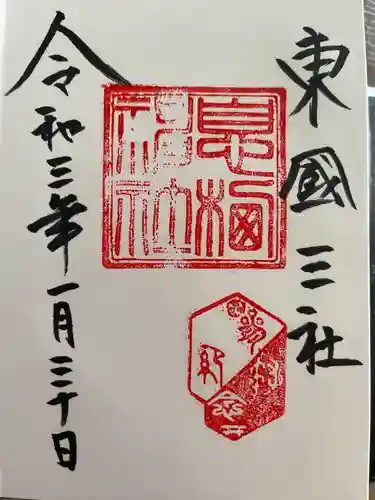 東國三社
息栖
神社
令和三年一月三十日